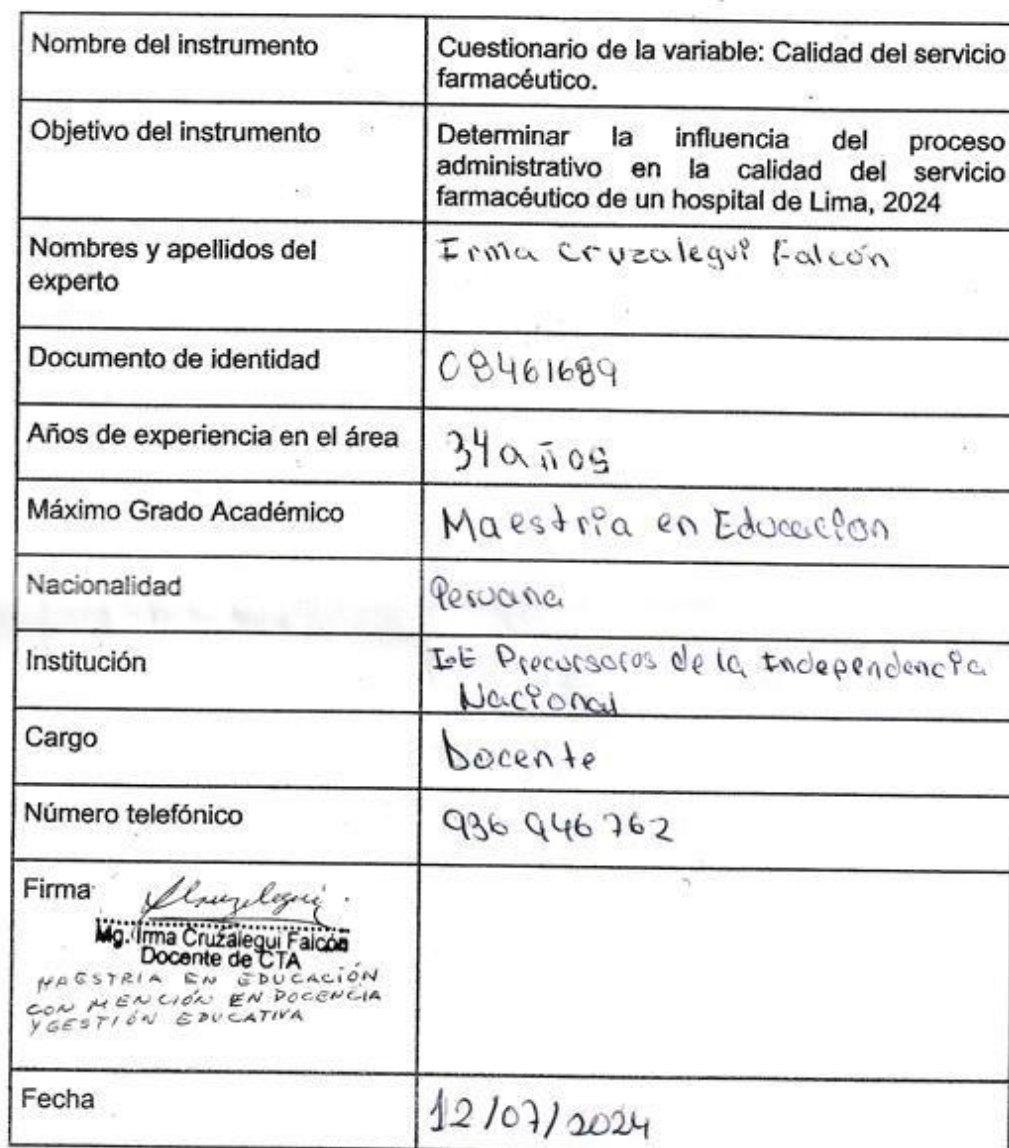 Nombre del instrumento
Cuestionario de la variable: Calidad del servicio
farmacéutico.
Objetivo del instrumento
Determinar la influencia del proceso
administrativo en la calidad del servicio
farmacéutico de un hospital de Lima, 2024
Nombres y apellidos del
experto
Irma Cruzalegui Falcón
Documento de identidad
08461689
Años de experiencia en el área
34 años
Máximo Grado Académico
Maestria en Educacion
Nacionalidad
Peruana
Institución
I.E Precursores de la Independencia
Nacional
Cargo
Docente
Número telefónico
936 946 762
Firma
Mg. Irma Cruzalegui Falcón
Docente de CTA
MAESTRIA EN EDUCACIÓN
CON MENCIÓN EN DOCENCIA
Y GESTIÓN EDUCATIVA
Fecha
12/07/2024